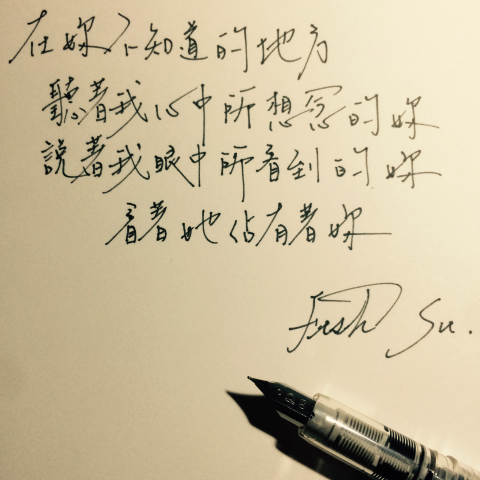 在妳不知道的地方
聽著我心中所想念的妳
說著我眼中所看到的妳
看著她佔有著妳
Fish Su.